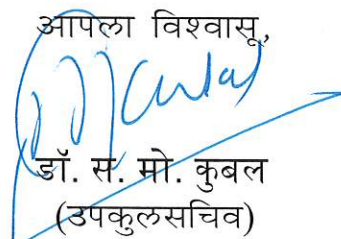 आपला विश्वासू,
डॉ. स. मो. कुबल
(उपकुलसचिव)